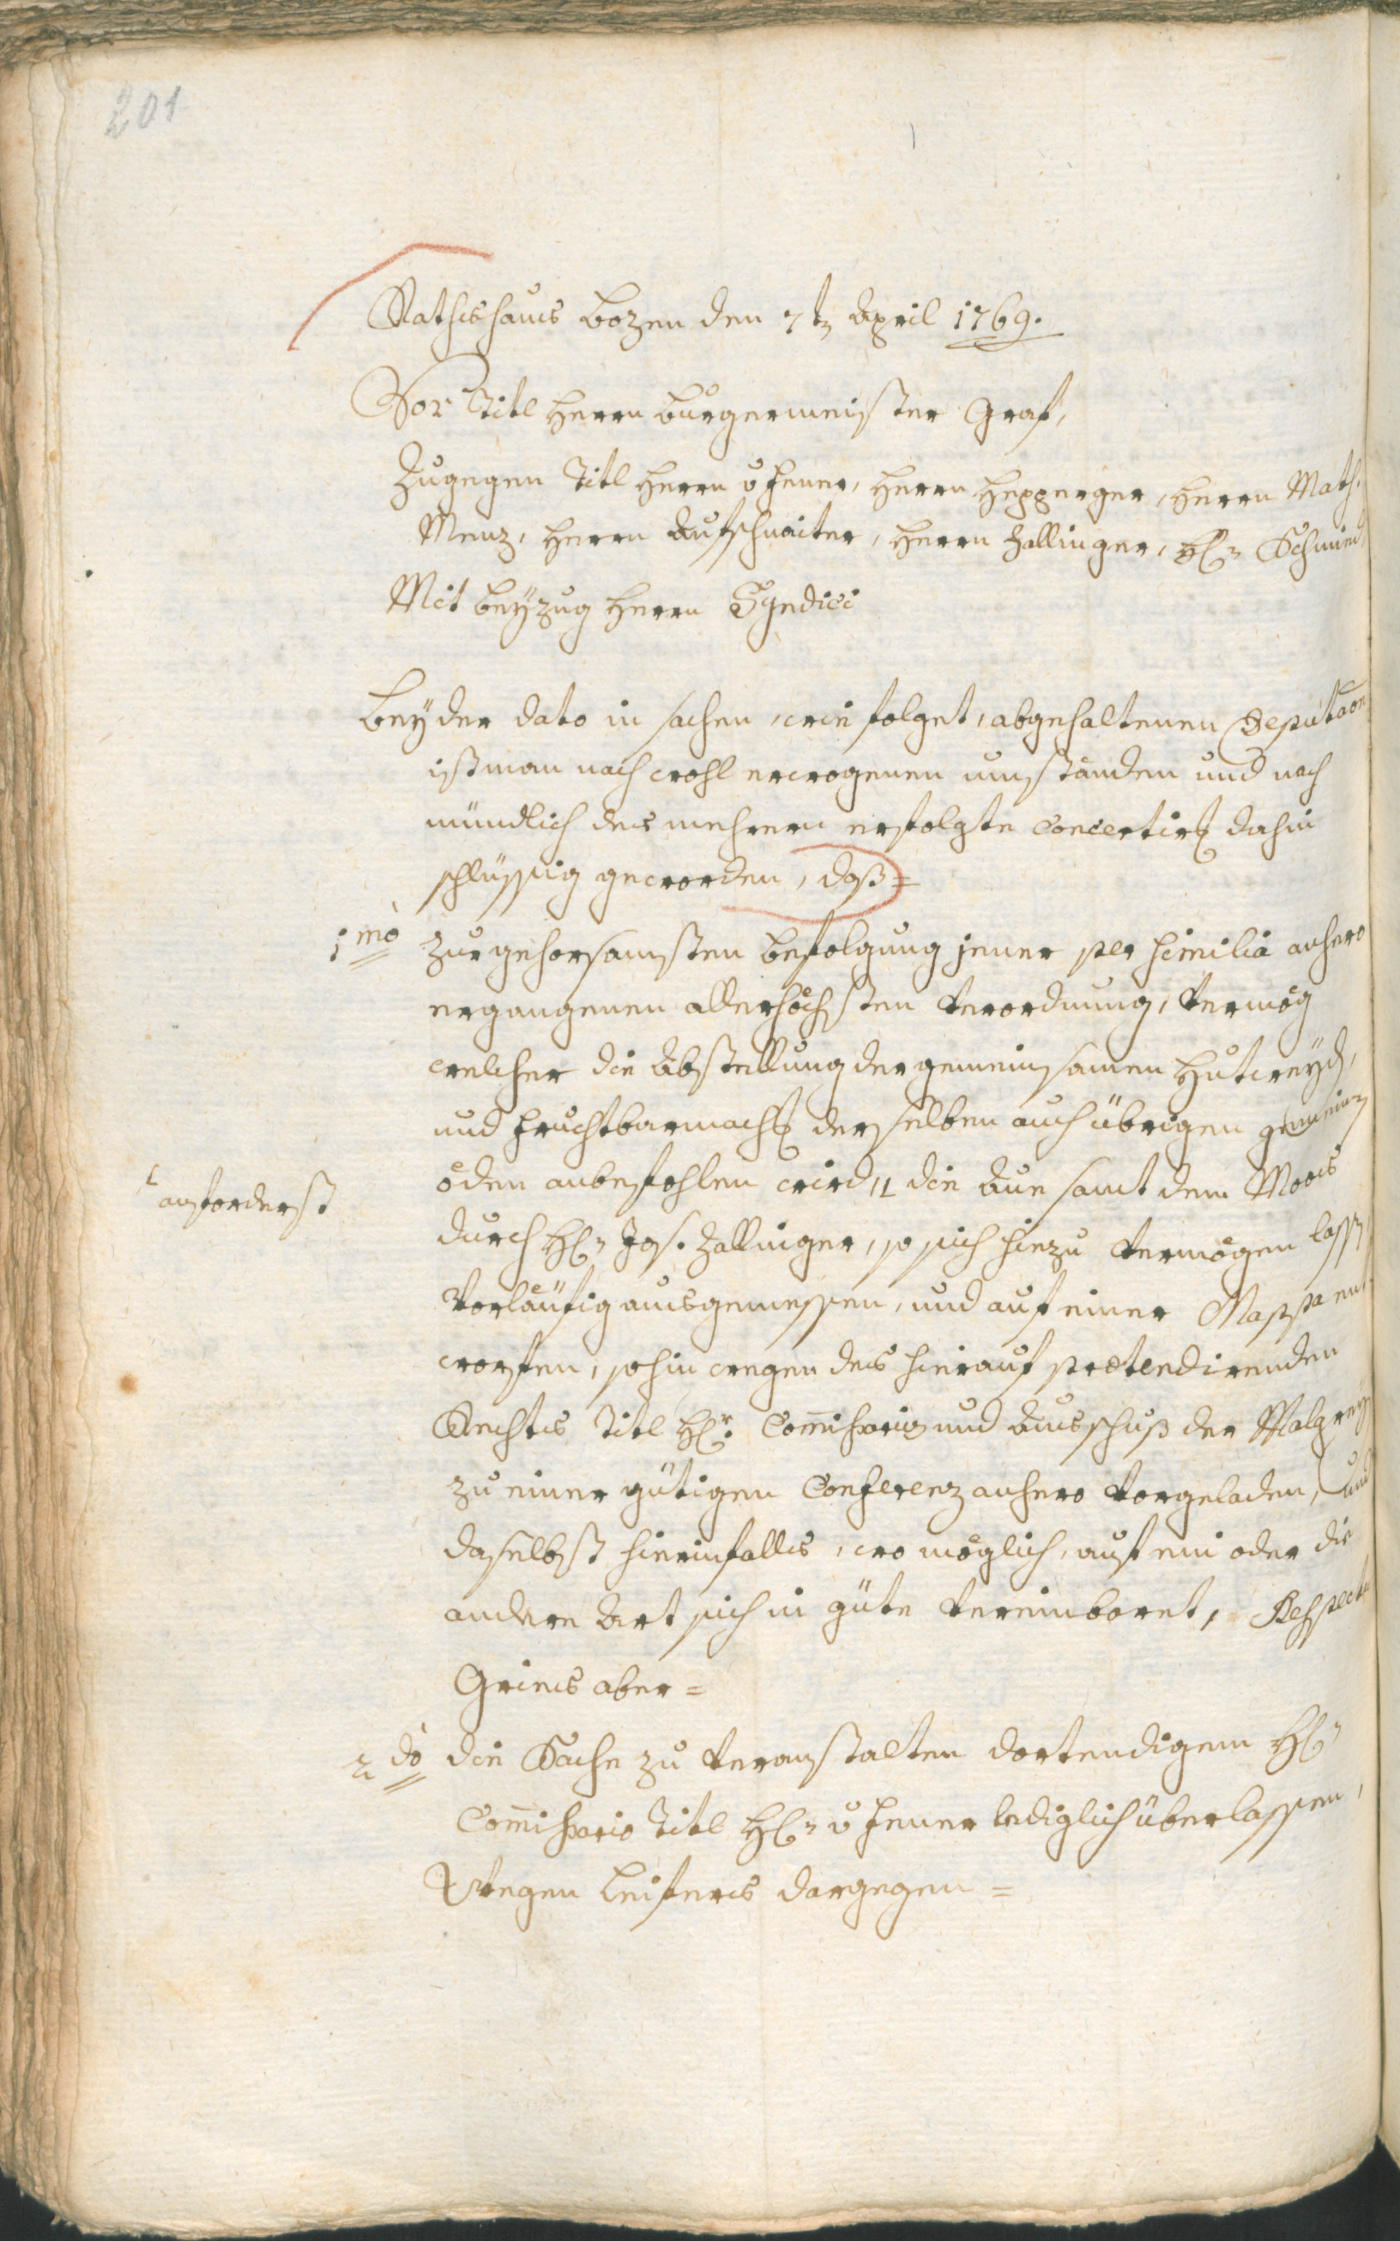 201
Rathshaus Bozen den 7tn April 1769.
Vor Titl Herrn Burgermeister Graf,
Zugegen Titl Herrn v Jenner, Herrn Hepperger, Herrn Math.
Menz, Herrn Aufschnaiter, Herrn Zallinger, H: Schmid
Mit beÿzug Herrn Syndici
Beÿ der dato in sachen, wie folget, abgehaltenen Deputaon
ist man nach wohl erwogenen umständen und nach
mündlich des mehrern erfolgte Concertirg dahin
schlüssig geworden, daß=
1mo zur gehorsamsten befolgung jener per similia anhero
ergangenen allerhöchsten Verordnung, Vermög
welcher die Abstellung der gemeinsamen Hutweÿd,
und fruchtbarmachg derselben auch übrigen gemein
öden anbefohlen wird, die Aue samt dem Moos
anforderst
durch H: Jos. Zallinger, so sich hiezu Vermögen lassn
Vorläufig ausgemessen, und auf einer Mappa ent
worfen, sohin wegen des hierauf prætendirenden
Rechts Titl Hr. Commissarius und Ausschuß der Malgreÿ
zu einer gütigen Conferenz anhero Vorgeladen, und
daselbst hierinfalls, wo möglich, auf ein oder die
andere Art sich in güte Vereinbaret, Respectu
Gries aber=
2do die Sache zu Veranstalten dortendigem H:
Commissario Titl H: v Jenner lediglich überlassen,
Wegen Leifers dargegen=